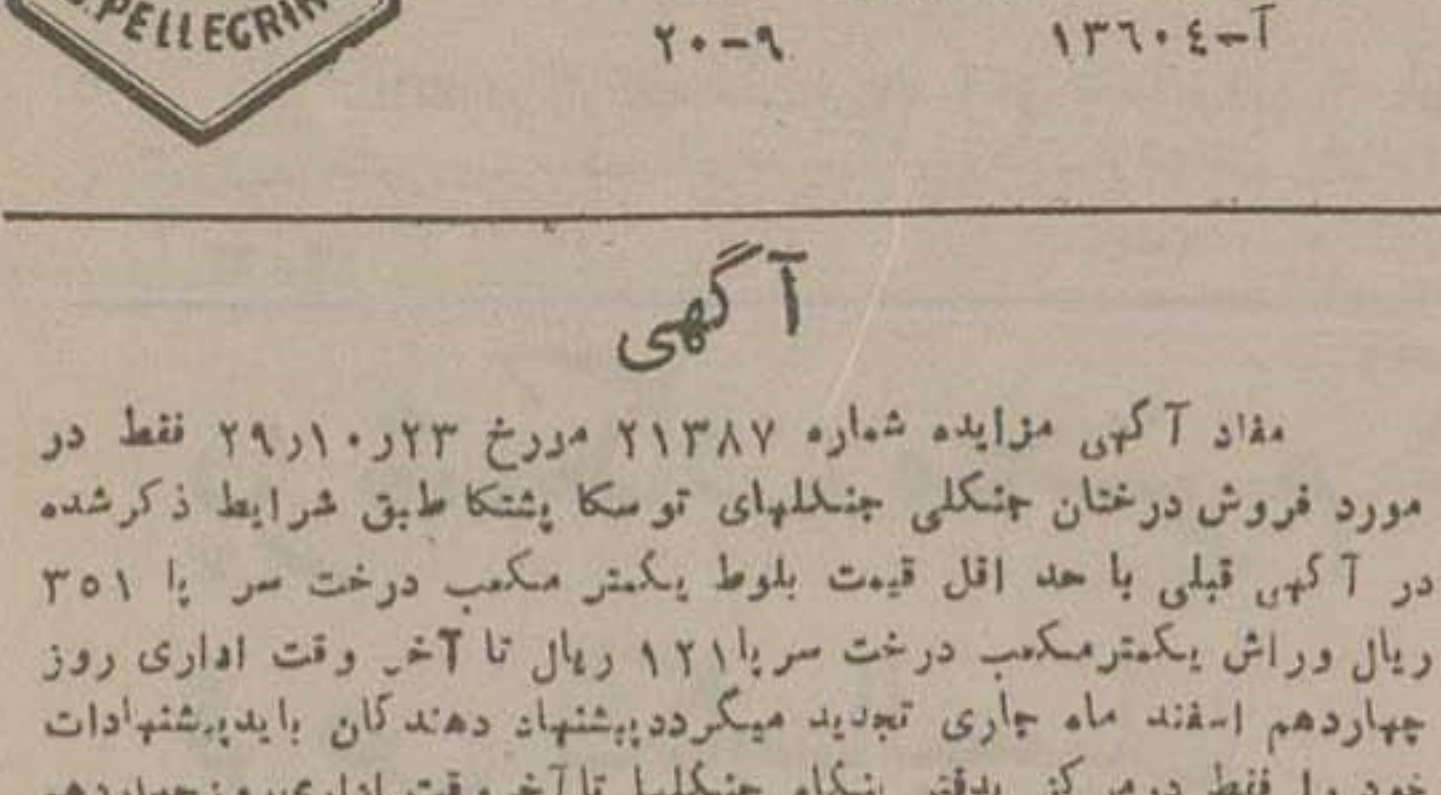 S.PELLEGRIN
آ-١٣٦٠٤ ٢٠-٩
آگهی
مفاد آگهی مزایده شماره ۲۱۳۸۷ مورخ ۲۳ر۱۰ر۲۹ فقط در
مورد فروش درختان جنگلی جنگلهای توسکا پشتکا طبق شرایط ذکر شده
در آگهی قبلی با حد اقل قیمت بلوط یکمتر مکعب درخت سر پا ۳۵۱
ریال وراش یکمتر مکعب درخت سر پا ۱۲۱ ریال تا آخر وقت اداری روز
چهاردهم اسفند ماه جاری تجدید میگردد پیشنهاد دهندگان باید پیشنهادات
خود را فقط در مرکز بدفتر بنگاه جنگلها تا آخر وقت اداری روز چهاردهم